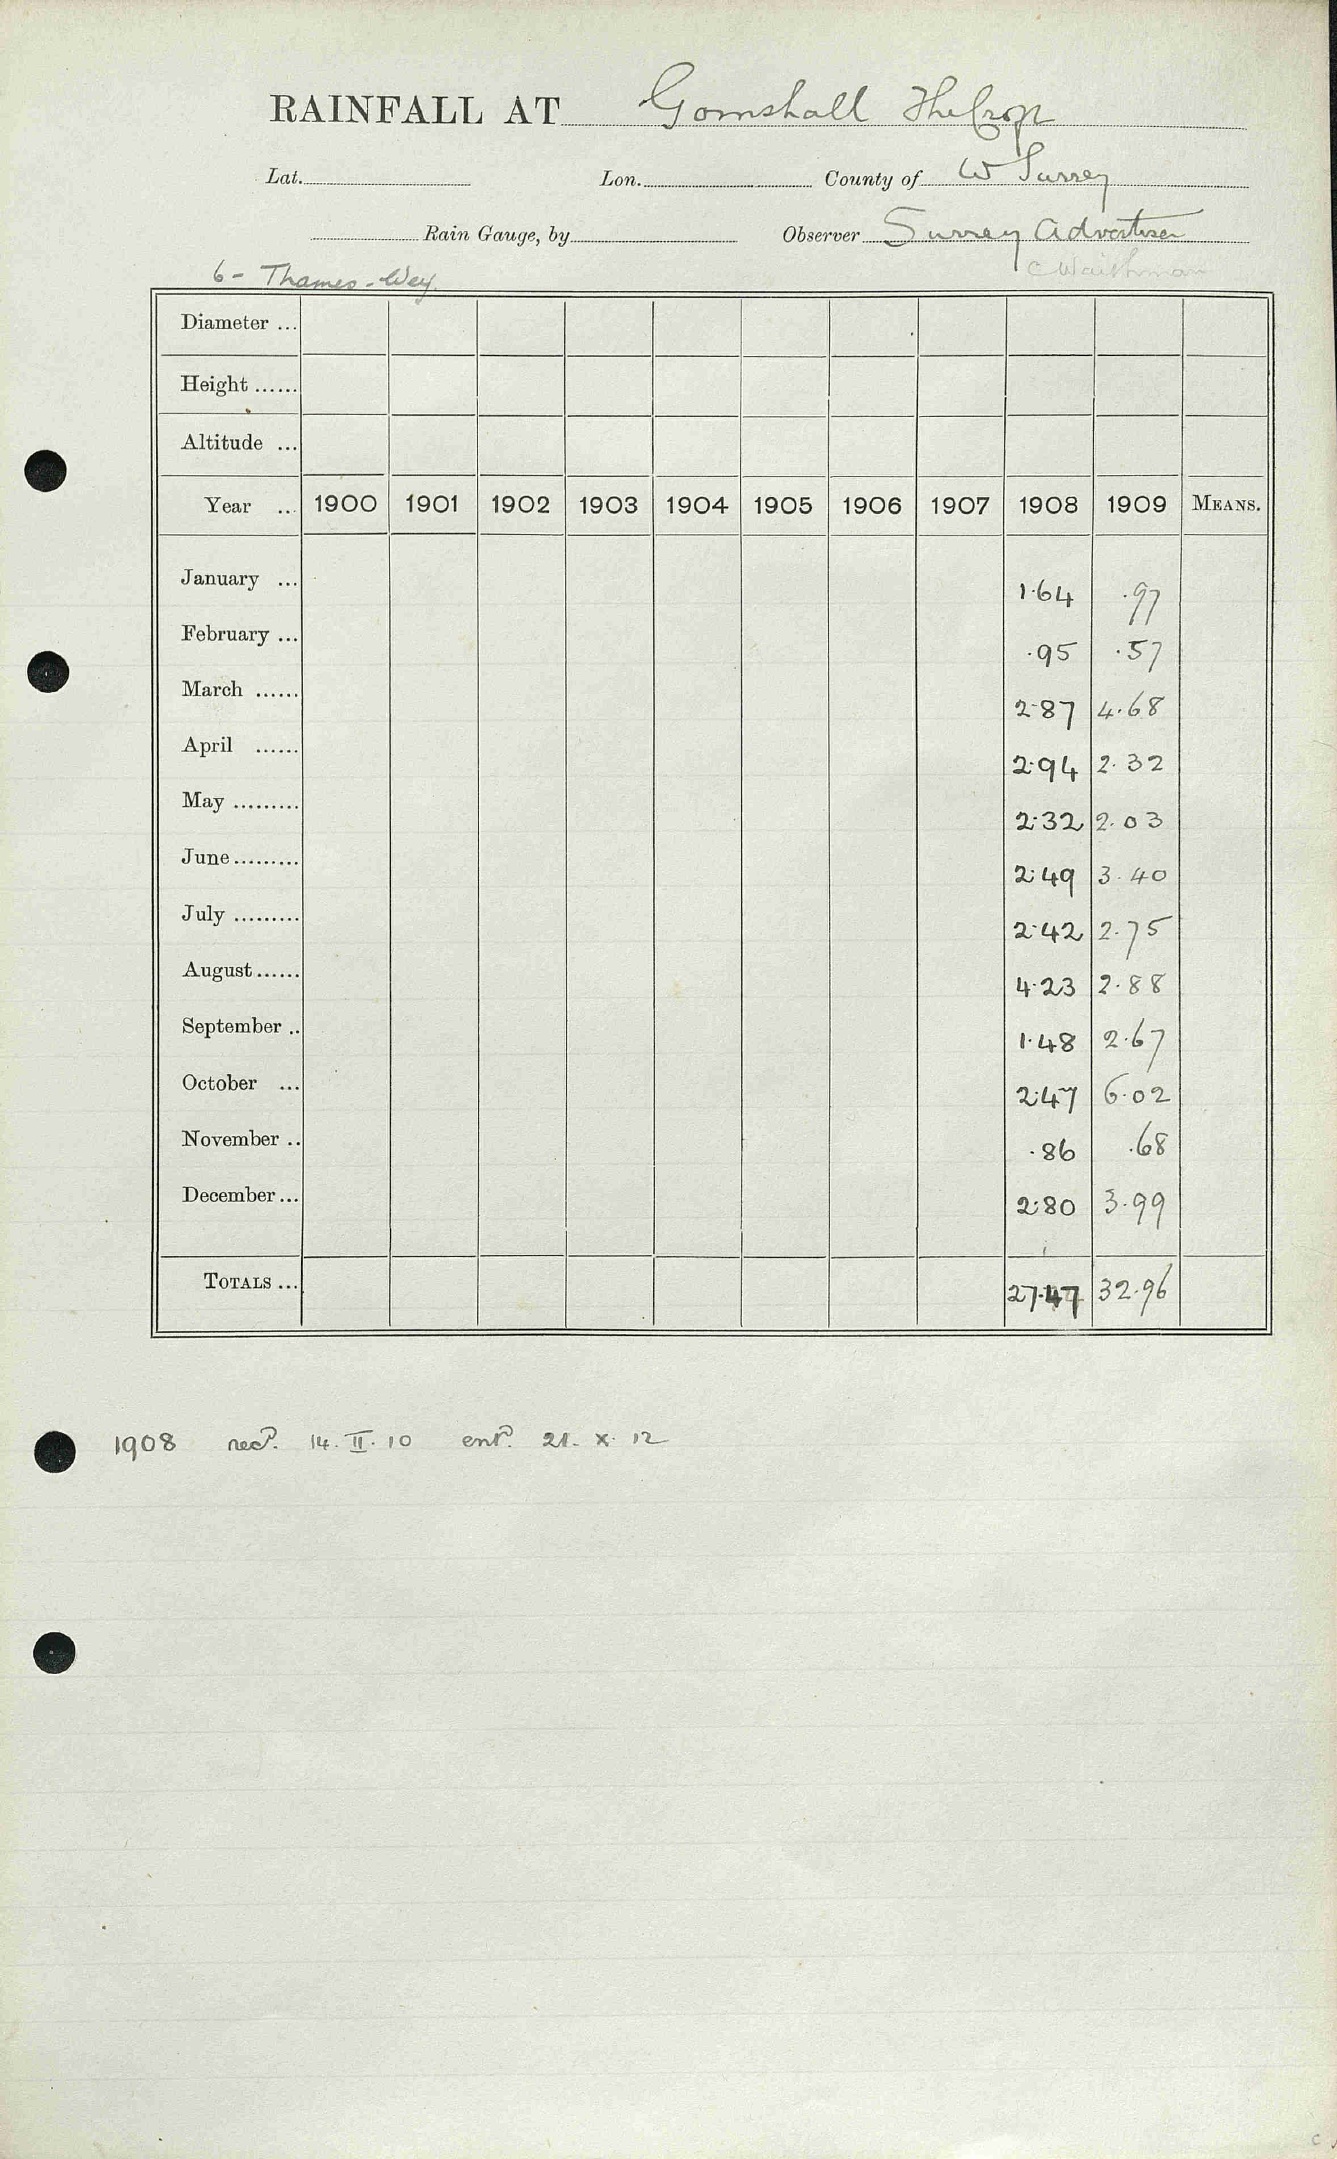 RAINFALL AT Gomshall The Crop
Lat. Lon. County of W Surrey
Rain Gauge, by Observer Surrey Advertiser
6 - Thames - Wey. C Waithman
Diameter ...
Height ......
Altitude ...
Year ... 1900 1901 1902 1903 1904 1905 1906 1907 1908 1909 MEANS.
January ... 1.64 .97
February ... .95 .57
March ...... 2.87 4.68
April ...... 2.94 2.32
May ......... 2.32 2.03
June ......... 2.49 3.40
July ......... 2.42 2.75
August ...... 4.23 2.88
September .. 1.48 2.67
October ... 2.47 6.02
November .. .86 .68
December ... 2.80 3.99
TOTALS ... 27.47 32.96
1908 recd. 14. II. 10 entd. 21. X. 12